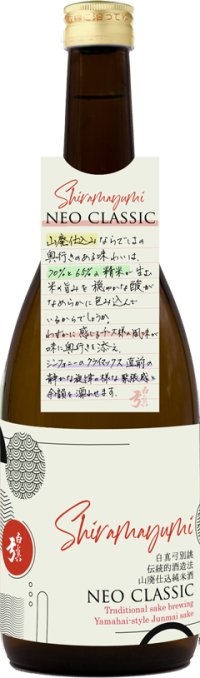 Shiramayumi
NEO CLASSIC
山廃仕込みならではの
奥行きのある味わいは、
70%と65%の精米が生む
米の旨みを穏やかな酸が
なめらかに包み込んで
いるからでしょうか。
わずかに感じるチーズ様の風味が
味に奥行きを添え、
シンフォニーのクライマックス直前の
静かな旋律の様な緊張感と
余韻を漂わせます。
白真弓
Shiramayumi
白真弓
白真弓別誂
伝統的酒造法
山廃仕込純米酒
NEO CLASSIC
Traditional sake brewing
Yamahai-style Junmai sake